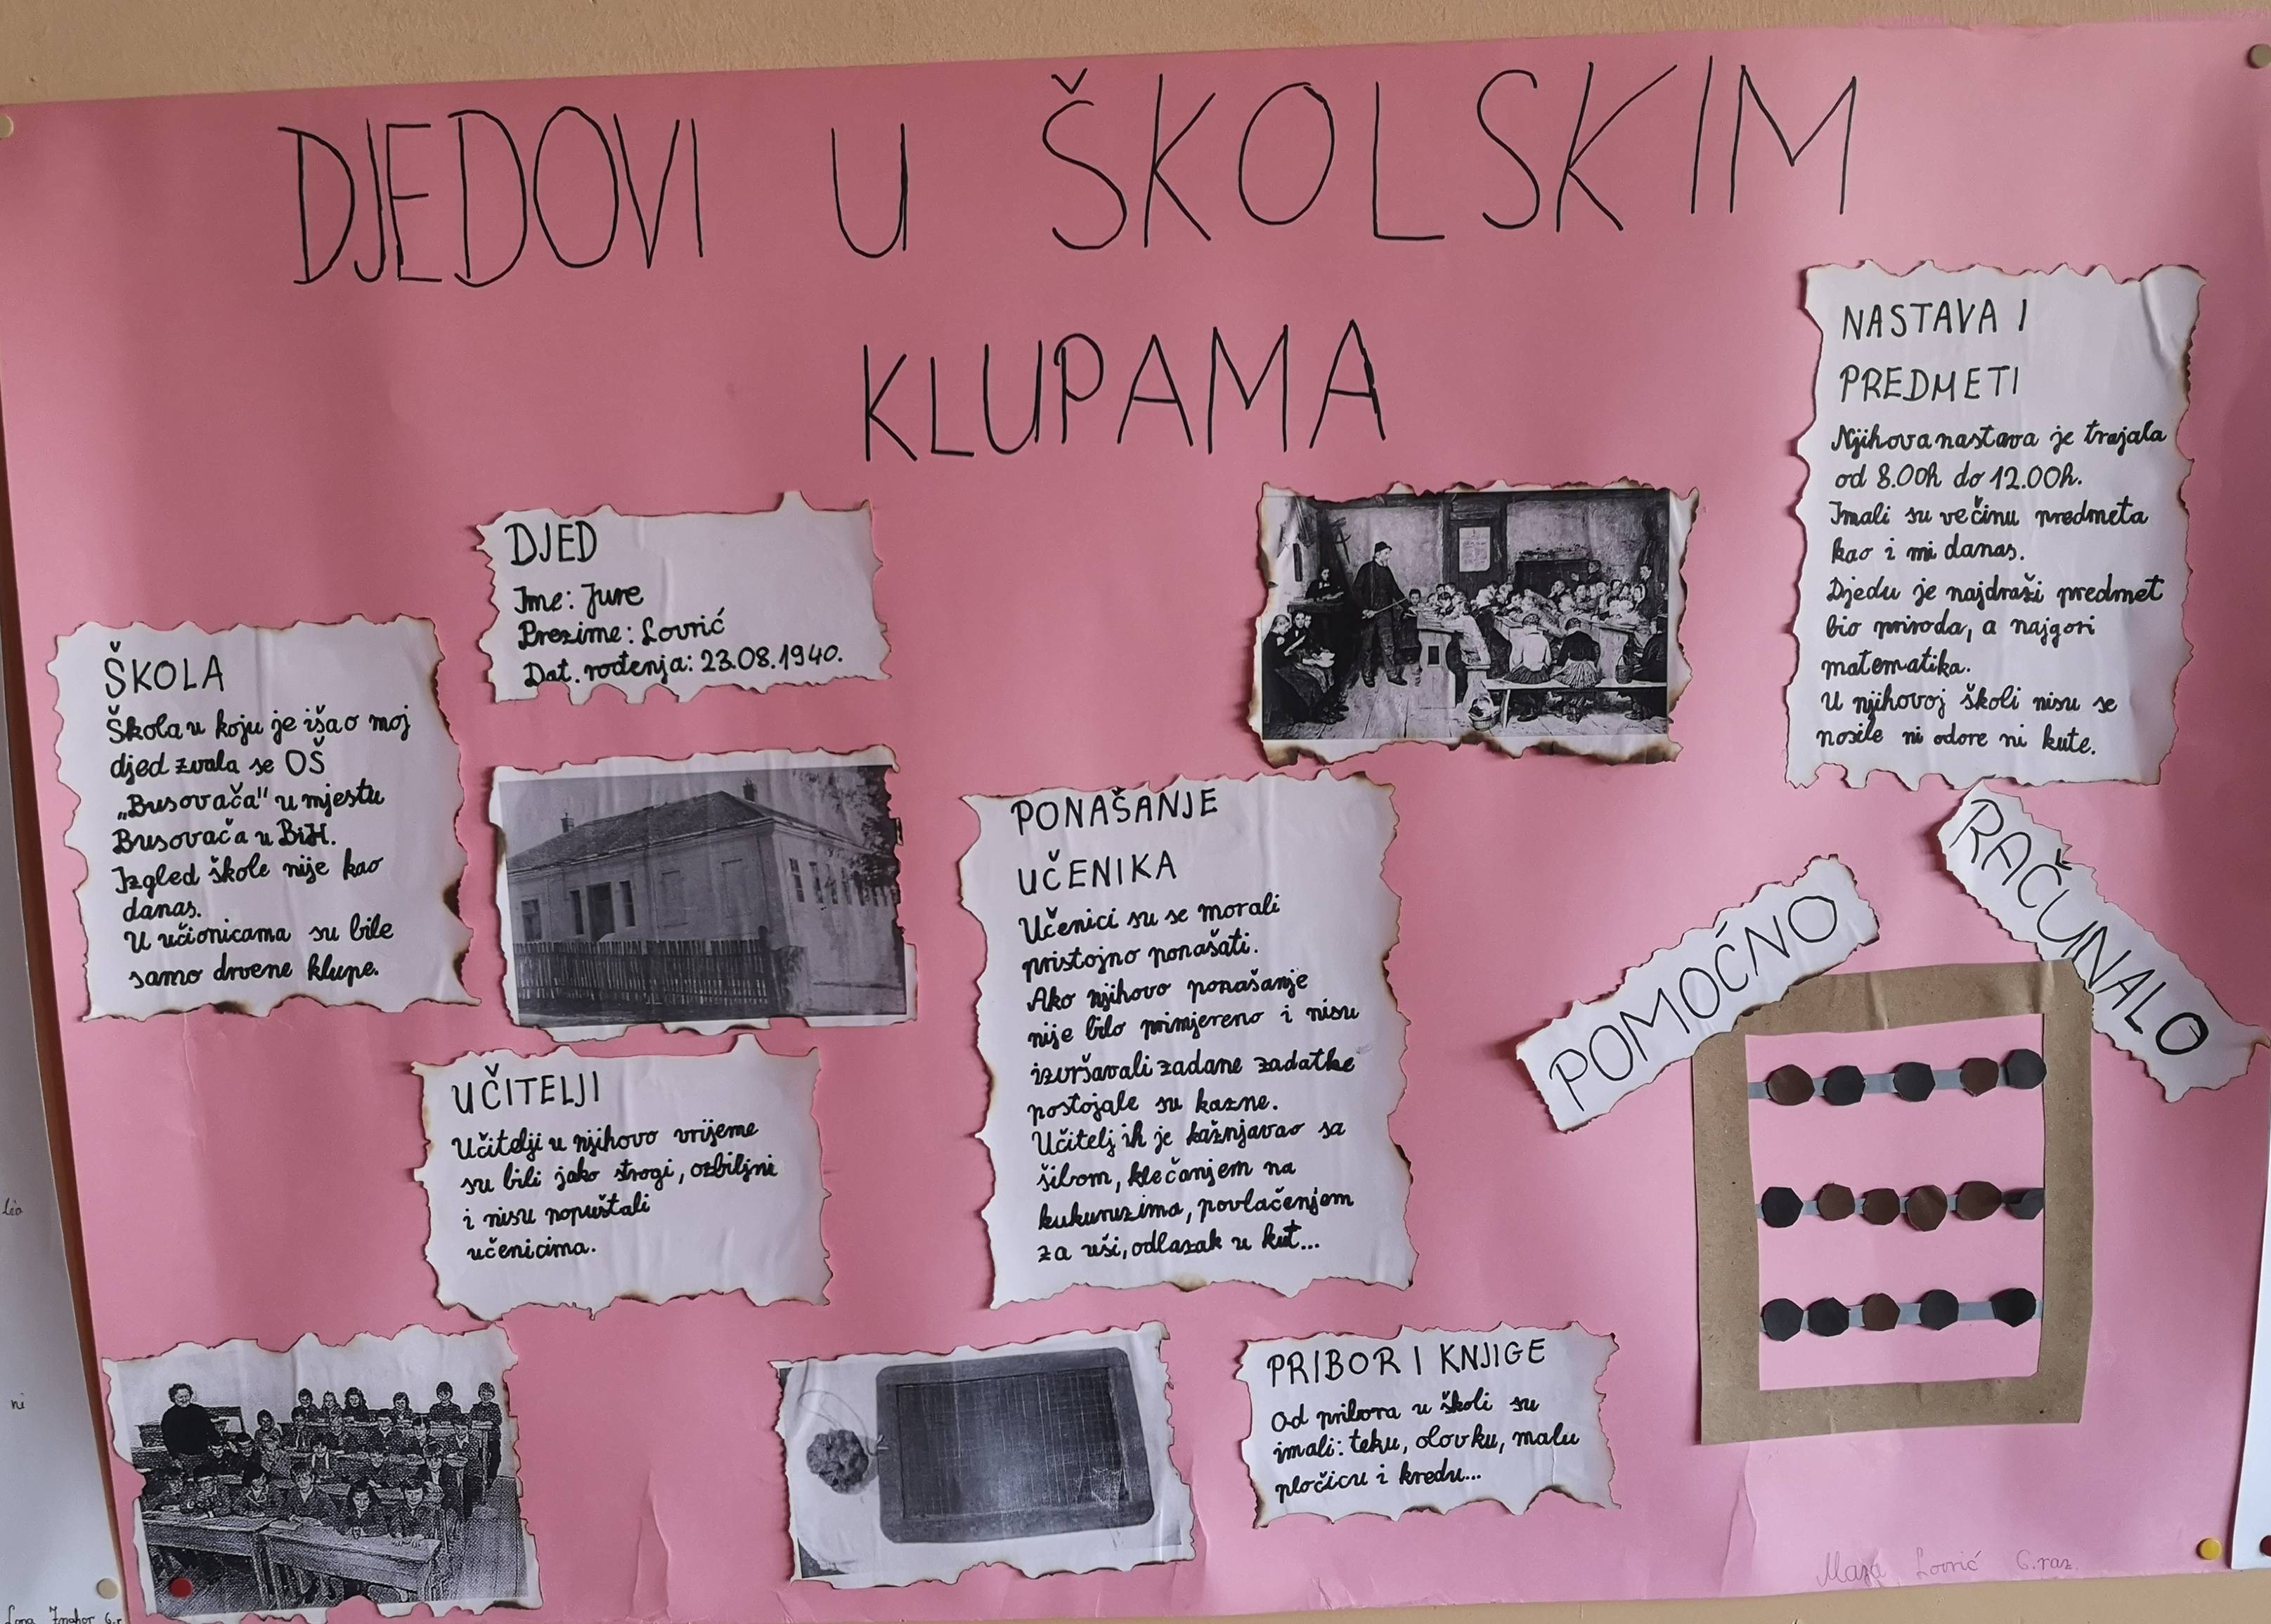 DJEDOVI U ŠKOLSKIM
KLUPAMA
DJED
Ime: Jure
Prezime: Lovrić
Dat. rođenja: 23.08.1940.
ŠKOLA
Škola u koju je išao moj
djed zvala se OŠ
„Busovača" u mjestu
Busovača u BiH.
Izgled škole nije kao
danas.
U učionicama su bile
samo drvene klupe.
UČITELJI
Učitelji u njihovo vrijeme
su bili jako strogi, ozbiljni
i nisu popuštali
učenicima.
PONAŠANJE
UČENIKA
Učenici su se morali
pristojno ponašati.
Ako njihovo ponašanje
nije bilo primjereno i nisu
izvršavali zadane zadatke
postojale su kazne.
Učitelj ih je kažnjavao sa
šibom, klečanjem na
kukuruzima, povlačenjem
za uši, odlazak u kut...
NASTAVA I
PREDMETI
Njihova nastava je trajala
od 8.00h do 12.00h.
Imali su većinu predmeta
kao i mi danas.
Djedu je najdraži predmet
bio priroda, a najgori
matematika.
U njihovoj školi nisu se
nosile ni odore ni kute.
POMOĆNO
RAČUNALO
PRIBOR I KNJIGE
Od pribora u školi su
imali: teku, olovku, malu
pločicu i kredu...
Maja Lovrić 6.raz.
ni